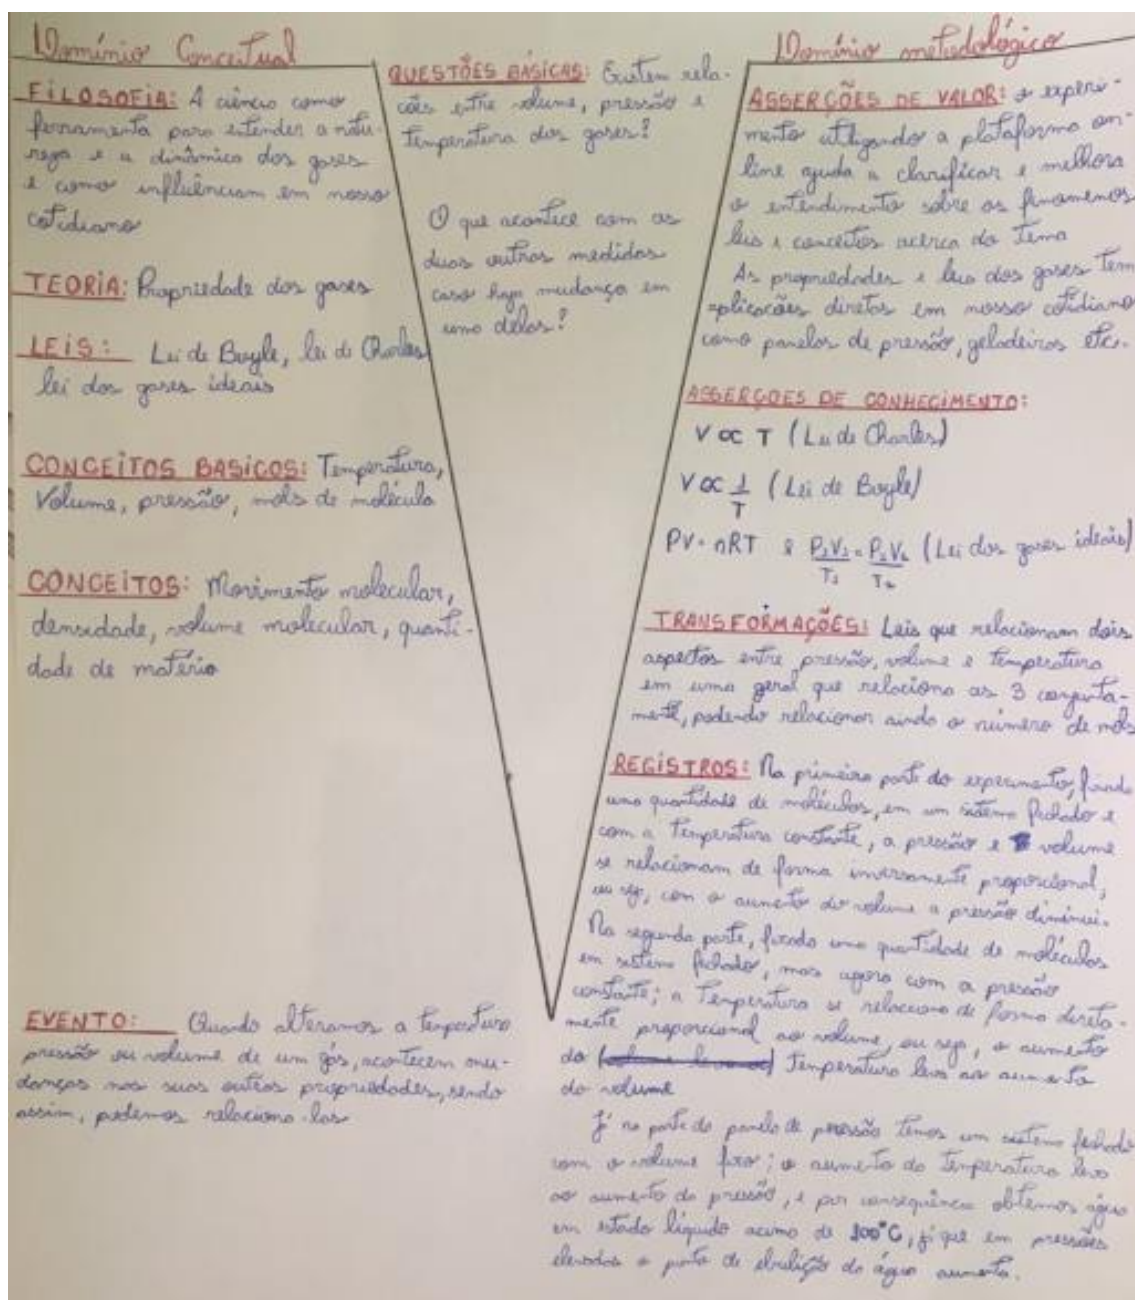 Domínio Conceitual
FILOSOFIA: A ciência como
ferramenta para entender a natu-
reza e a dinâmica dos gases
e como influênciam em nosso
cotidiano
TEORIA: Propriedade dos gases
LEIS: Lei de Boyle, lei de Charles
lei dos gases ideais
CONCEITOS BASICOS: Temperatura,
Volume, pressão, mols de molécula
CONCEITOS: Movimento molecular,
densidade, volume molecular, quanti-
dade de matéria
EVENTO: Quando alteramos a temperatura
pressão ou volume de um gás, acontecem mu-
danças nas suas outras propriedades, sendo
assim, podemos relaciona-las
QUESTÕES BÁSICAS: Existem rela-
ções entre volume, pressão e
temperatura dos gases?
O que acontece com as
duas outras medidas
caso haja mudança em
uma delas?
Domínio metodológico
ASSERÇÕES DE VALOR: o experi-
mento utilizando a plataforma on-
line ajuda a clarificar e melhora
o entendimento sobre os fenomenos
leis e conceitos acerca do tema
As propriedades e leis dos gases tem
aplicações diretas em nosso cotidiano
como panelas de pressão, geladeiras etc.
ASSERÇOES DE CONHECIMENTO:
V ∝ T (Lei de Charles)
V ∝ 1/T (Lei de Boyle)
PV = nRT e P₁V₁/T₁ = P₂V₂/T₂ (Lei dos gases ideais)
TRANSFORMAÇÕES: Leis que relacionam dois
aspectos entre pressão, volume e temperatura
em uma geral que relaciona as 3 conjunta-
mente, podendo relacionar ainda o número de mols
REGISTROS: Na primeira parte do experimento, fixada
uma quantidade de moléculas, em um sistema fechado e
com a temperatura constante, a pressão e volume
se relacionam de forma inversamente proporcional,
ou seja, com o aumento do volume a pressão diminui.
Na segunda parte, fixado uma quantidade de moléculas
em sistema fechado, mas agora com a pressão
constante; a temperatura se relaciona de forma direta-
mente proporcional ao volume, ou seja, o aumento
da temperatura leva ao aumento
do volume
Já na parte da panela de pressão temos um sistema fechado
com o volume fixo; o aumento da temperatura leva
ao aumento da pressão, e por consequência obtemos água
em estado líquido acima de 100°C, já que em pressões
elevadas o ponto de ebulição da água aumenta.